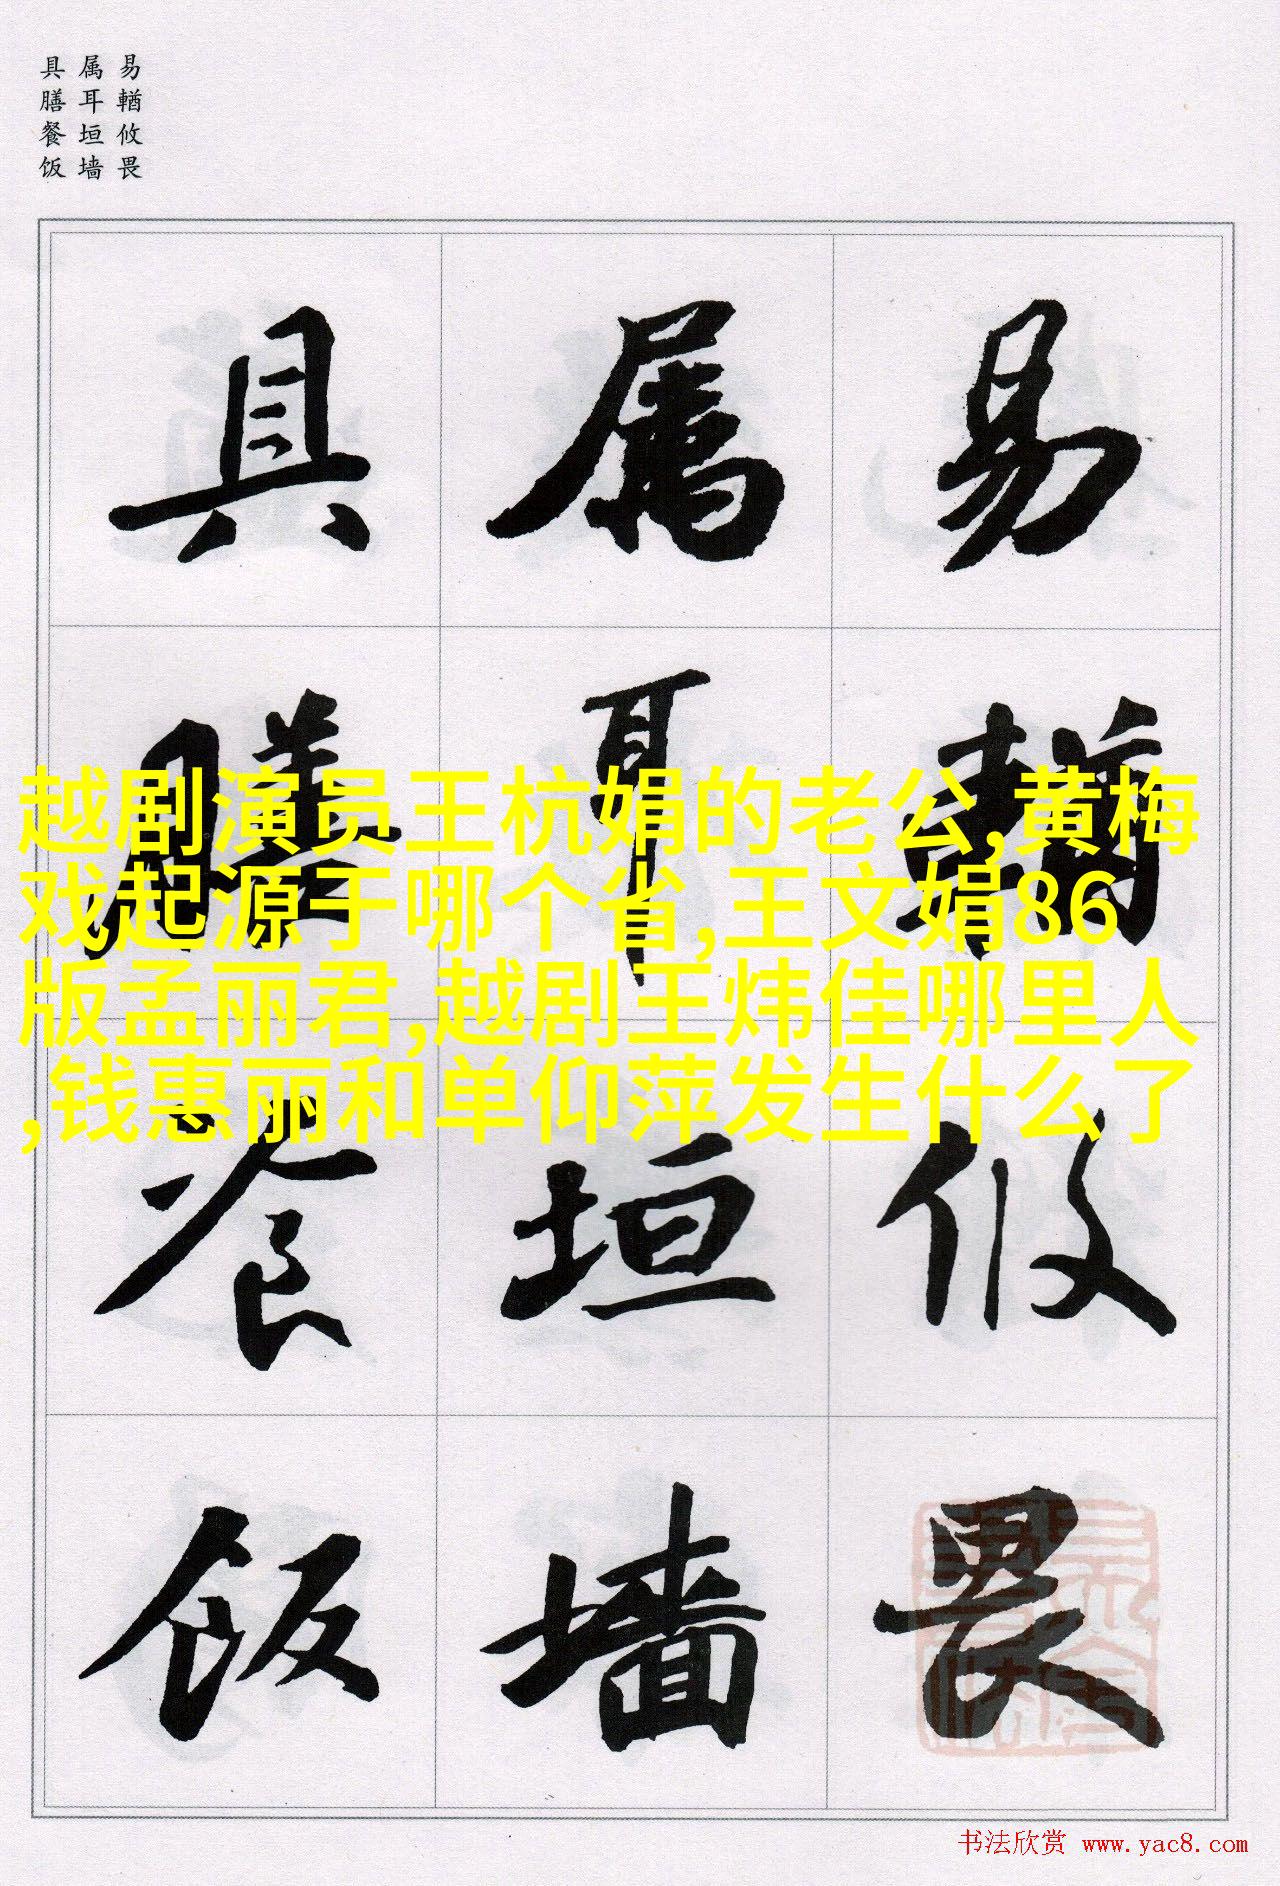 易輶攸畏
属耳垣墙
具膳餐饭
易
輶
攸
畏
属
耳
垣
墙
具
膳
飡
饭
越剧演员王杭娟的老公,黄梅
戏起源于哪个省,王文娟86
版孟丽君,越剧王炜佳哪里人
,钱惠丽和单仰萍发生什么了
书法欣赏 www.yac8.com